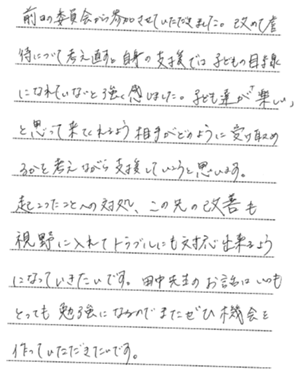 前回の委員会から参加させていただきました。改めて虐
待について考え直す。自身の支援では子どもの目線
になれていないと強く感じました。子ども達が楽しい、
と思って来てくれるよう相手がどのように受け取め
るかを考えながら支援していこうと思います。
起こったことへの対処、この先の改善も
視野に入れてトラブルにも対応出来るよう
になっていきたいです。田中先生のお話はいつも
とっても勉強になるのでまたぜひ機会を
作っていただきたいです。